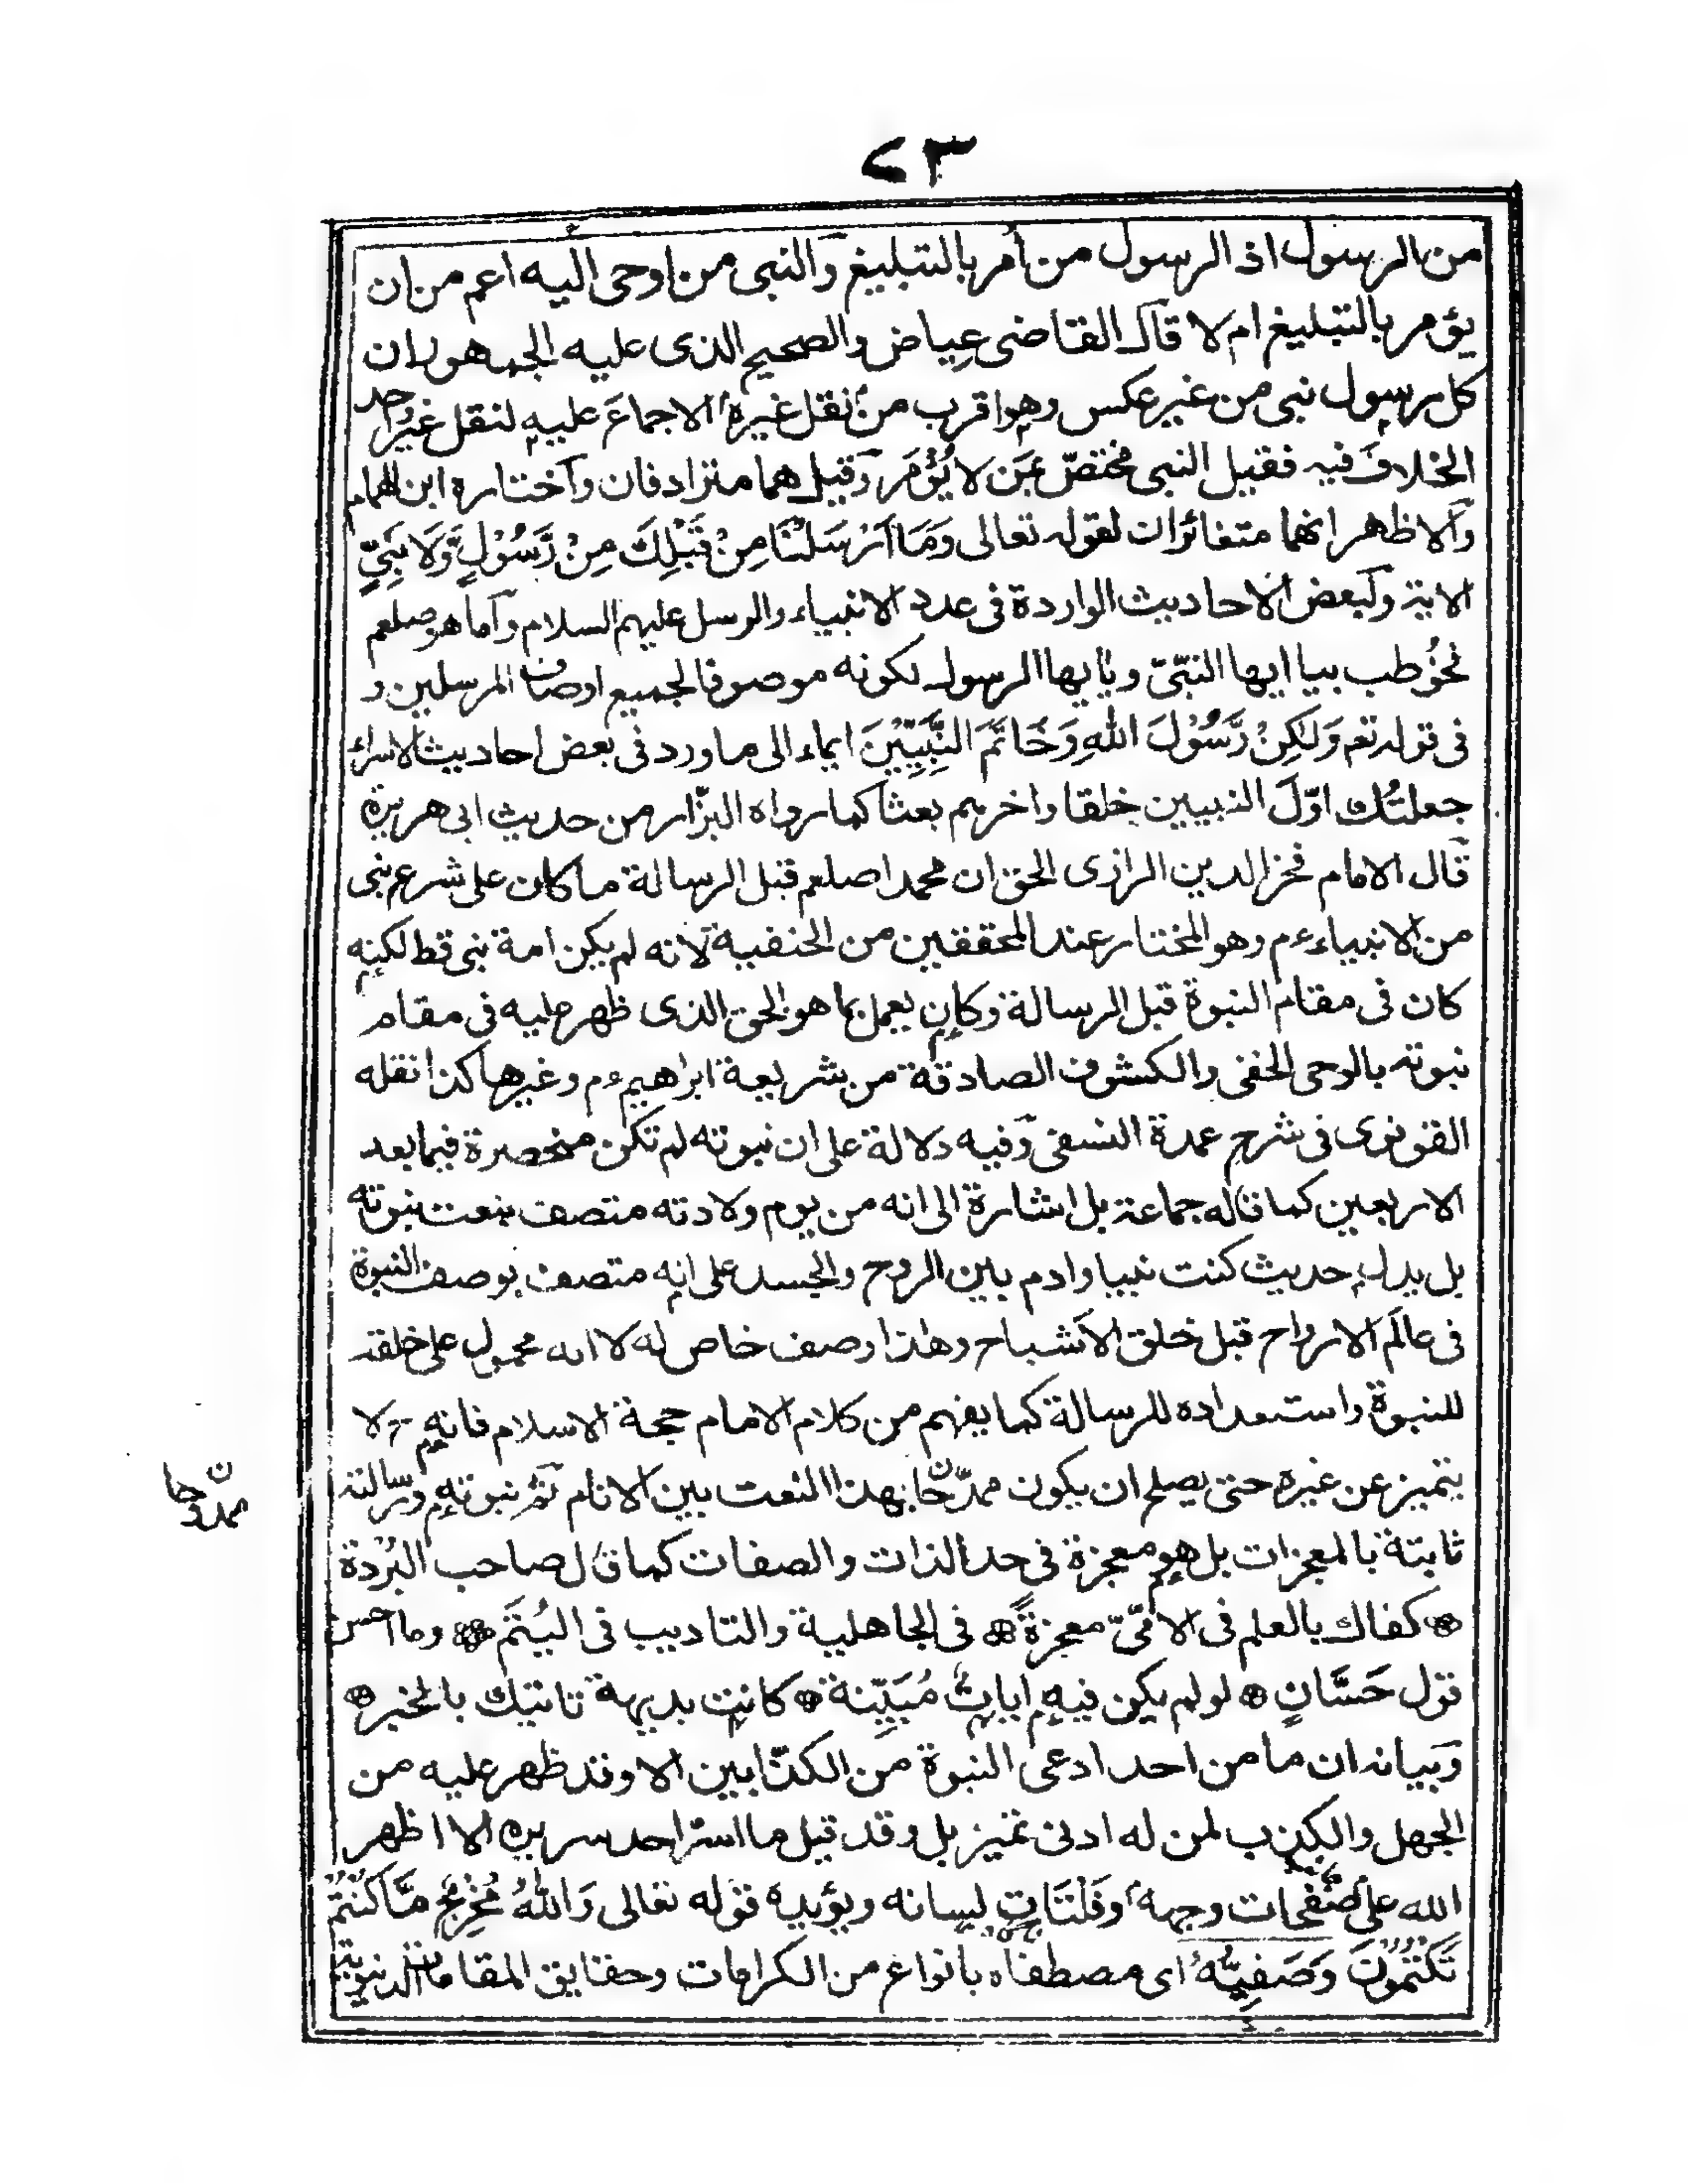 ٧٣
من الرسول اذ الرسول من اُمر بالتبليغ والنبى من اوحى اليه اعم من ان
يؤمر بالتبليغ ام لا قال القاضى عِياض والصحيح الذى عليه الجمهور ان
كل رسول نبى من غير عكس وهو اقرب من نقل غيره الاجماعَ عليه لنقل غير واحد
الخلافَ فيه فقيل النبى مختصّ بمَن لا يُؤْمَر وقيل هما مترادفان واختاره ابن الهمام
والاظهر انهما متغائران لقوله تعالى وَمَا اَرْسَلْنَا مِنْ قَبْلِكَ مِنْ رَّسُوْلٍ وَّلَا نَبِيٍّ
الاية ولبعض الاحاديث الواردة فى عدد الانبياء والرسل عليهم السلام واما هو صلعم
فخُوطب بيا ايها النبّىّ ويايها الرسول لكونه موصوفا لجميع اوصاف المرسلين و
فى قوله تعم وَلٰكِنْ رَّسُوْلَ اللّٰهِ وَخَاتَمَ النَّبِيِّيْنَ ايماء الى ما ورد فى بعض احاديث الاسراء
جعلتُك اوّلَ النبيين خلقا واخرهم بعثا كما رواه البزّار من حديث ابى هريرة
قال الامام فخر الدين الرازى الحق ان محمدا صلعم قبل الرسالة ما كان على شرع نبى
من الانبياء ءم وهو المختار عند المحققين من الحنفية لانه لم يكن امة نبى قط لكنه
كان فى مقام النبوة قبل الرسالة وكان يعمل بما هو الحق الذى ظهر عليه فى مقام
نبوته بالوحى الخفى والكشوف الصادقة من شريعة ابراهيم ءم وغيرها كذا نقله
القونوى فى شرح عمدة النسفى وفيه دلالة على ان نبوته لم تكن منحصرة فيما بعد
الاربعين كما قاله جماعة بل اشارة الى انه من يوم ولادته متصف بنعت نبوته
بل يدل حديث كنت نبيا وادم بين الروح والجسد على انه متصف بوصف النبوة
فى عالَم الارواح قبل خلق الاَشباح وهذا وصف خاص له لا انه محمول على خلقه
للنبوة واستعداده للرسالة كما يفهم من كلام الامام حجة الاسلام فانه ح لا
يتميز عن غيره حتى يصلح ان يكون ممدّحا بهذا النعت بين الانام ثم نبوته ورسالته
ثابتة بالمعجزات بل هو معجزة فى حد الذات والصفات كما قال صاحب البُردة
كفاك بالعلم فى الامّىّ معجزةً فى الجاهلية والتاديب فى اليُتَم وما احسن
قول حَسَّانٍ لو لم يكن فيه اياتٌ مُبَيِّنة كانت بديهة تاتيك بالخبر
وبيانه ان ما من احد ادعى النبوة من الكذّابين الا وقد ظهر عليه من
الجهل والكذب لمن له ادنى تميز بل وقد قيل ما اسرّ احد سريرة الا اظهر
الله على صفحات وجهه وفَلَتَاتِ لسانه ويؤيده قوله تعالى وَاللّٰهُ مُخْرِجٌ مَّا كُنْتُمْ
تَكْتُمُوْنَ وَصَفِيُّهٗ اى مصطفاه بانواع من الكرامات وحقايق المقامات
ممدوحا ن